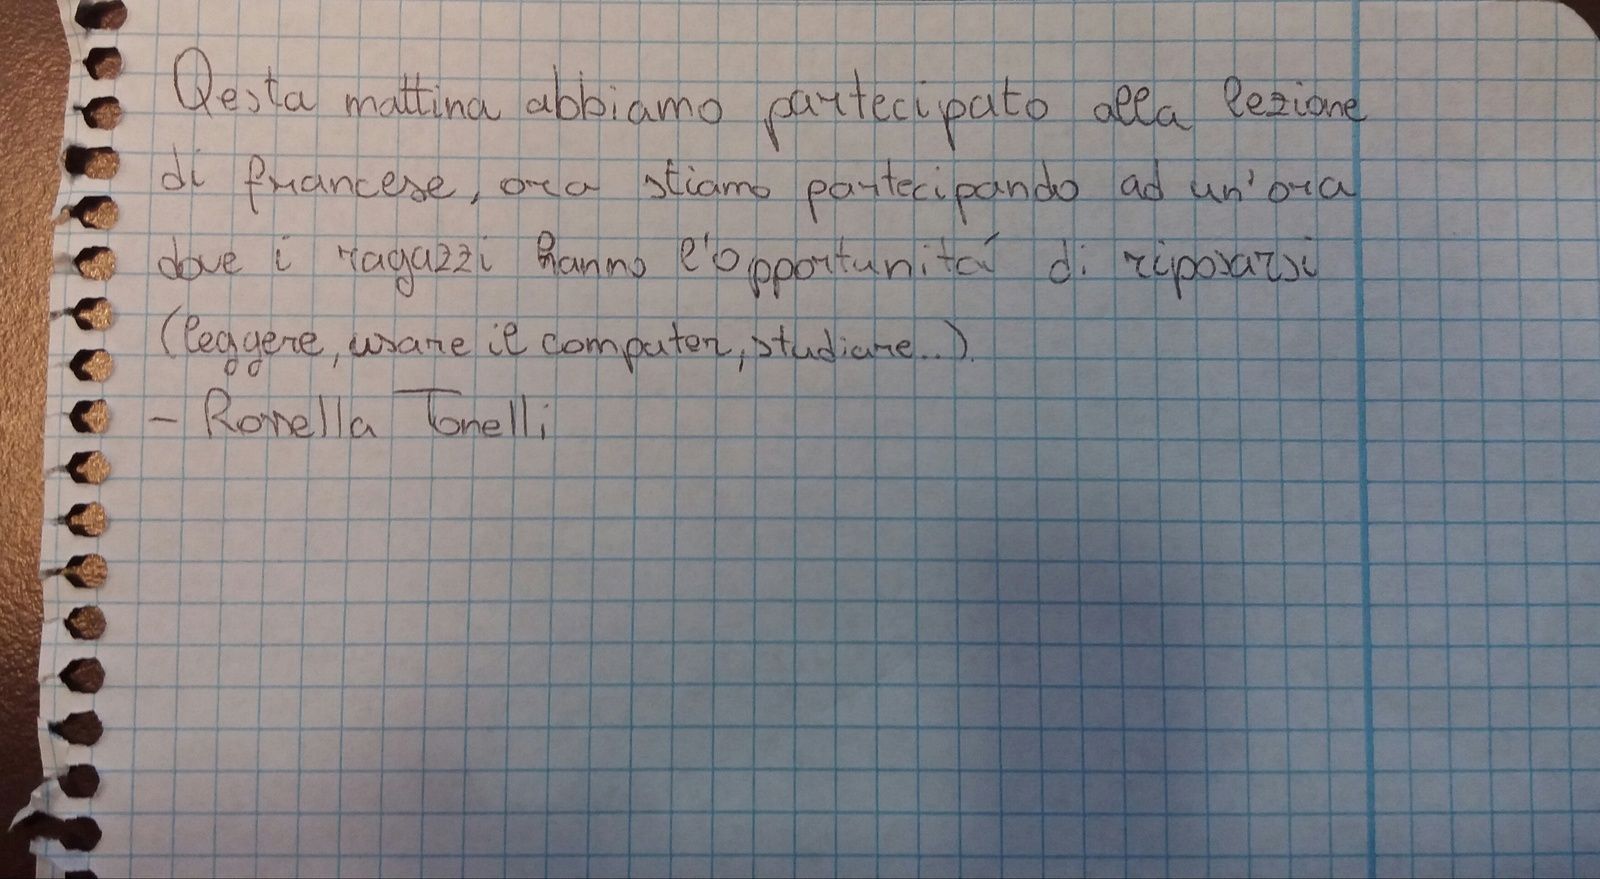 Qesta mattina abbiamo partecipato alla lezione
di francese, ora stiamo partecipando ad un'ora
dove i ragazzi hanno l'opportunitá di riposarsi
(leggere, usare il computer, studiare...).
- Ronella Tonelli